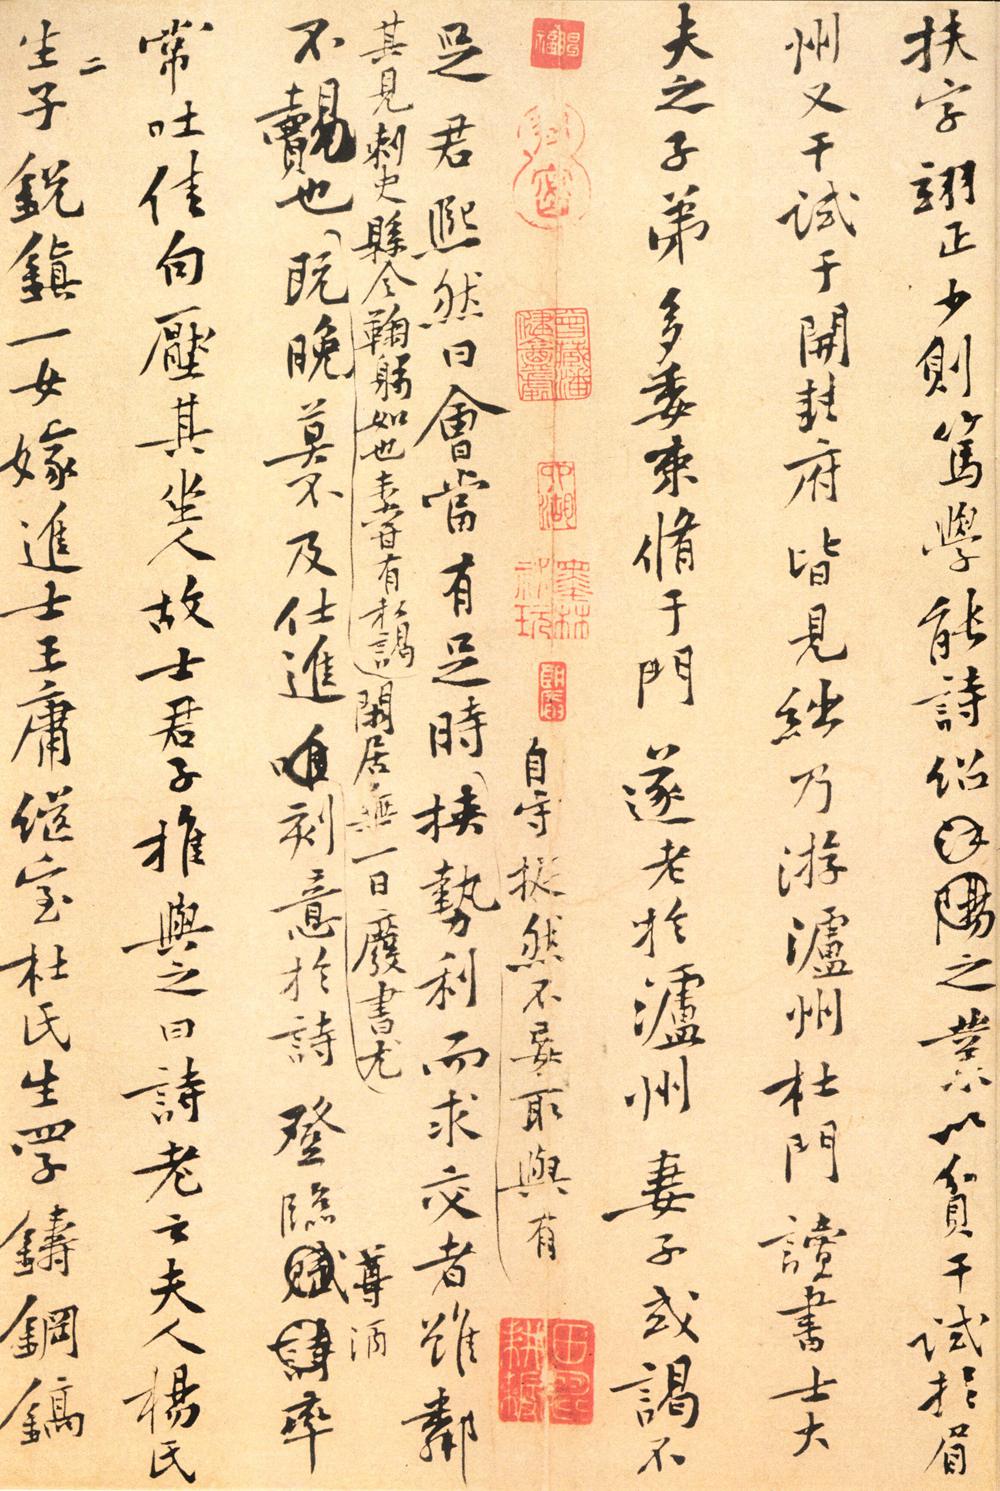 扶字翊正少則篤學能詩紹陽之業以貧干試於眉
州又干試于開封府皆見絀乃游瀘州杜門讀書士大
夫之子弟多委束脩于門遂老於瀘州妻子或謁不
自守挺然不妄取與有
足君熙然曰會當有足時挾勢利而求交者雖鄰
其見刺史縣令鞠躬如也未嘗有私謁閑居無一日廢書尤
尊酒
不覿也既晚莫不及仕進唯刻意於詩登臨賦詩率
常吐佳句壓其坐人故士君子推與之曰詩老云夫人楊氏
二
生子銳鎮一女嫁進士王庸繼室杜氏生四子鑄鋼鎬